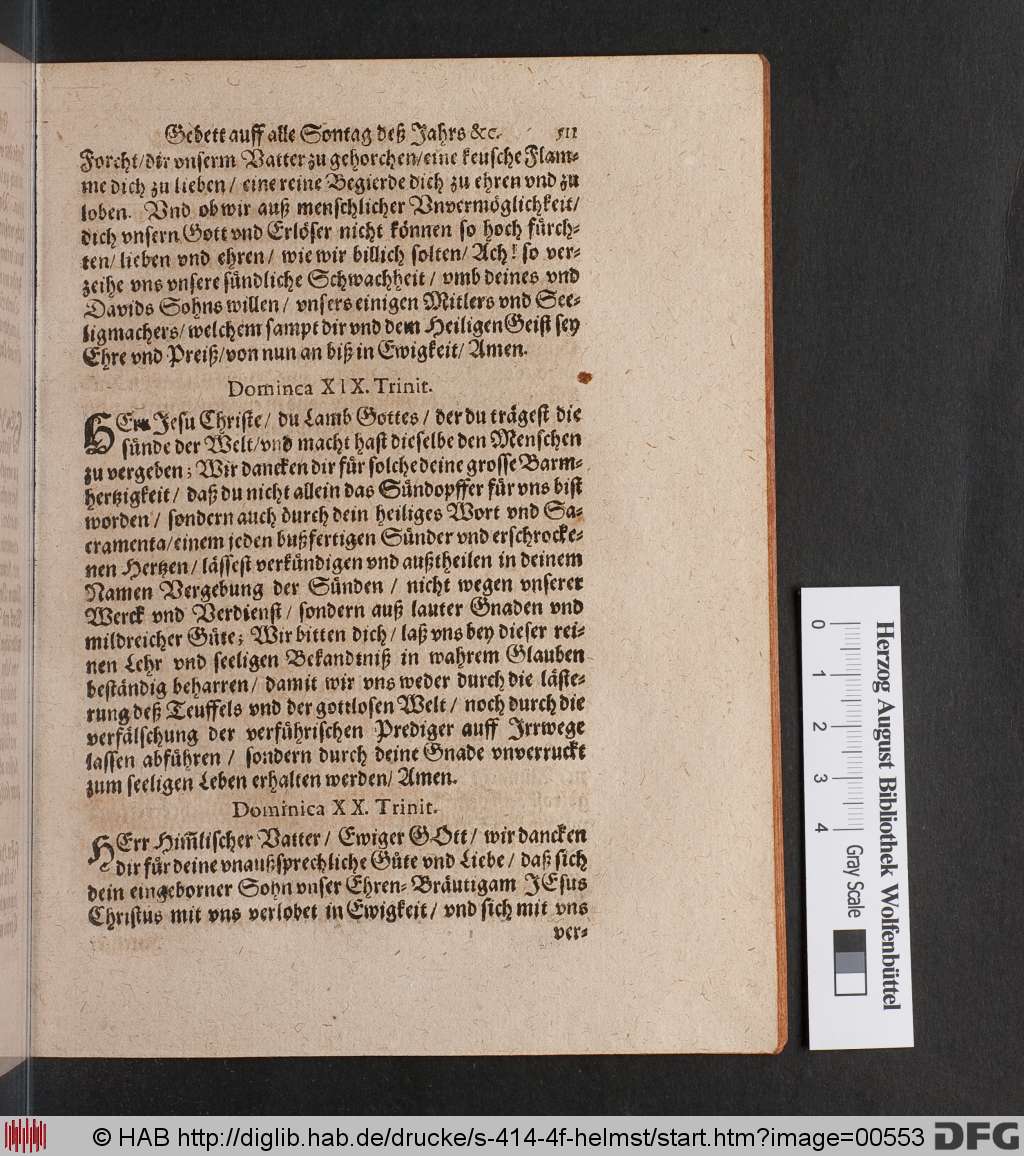 Gebett auff alle Sontag deß Jahrs &c. 511
Forcht/dir vnserm Vatter zu gehorchen/eine keusche Flam-
me dich zu lieben / eine reine Begierde dich zu ehren vnd zu
loben. Vnd ob wir auß menschlicher Vnvermöglichkeit/
dich vnsern Gott vnd Erlöser nicht können so hoch fürch-
ten/ lieben vnd ehren / wie wir billich solten/ Ach! so ver-
zeihe vns vnsere sündliche Schwachheit / vmb deines vnd
Davids Sohns willen / vnsers einigen Mitlers vnd See-
ligmachers/ welchem sampt dir vnd dem Heiligen Geist sey
Ehre vnd Preiß/von nun an biß in Ewigkeit/ Amen.
Dominca XIX. Trinit.
HErr Jesu Christe/ du Lamb Gottes / der du trägest die
sünde der Welt/vnd macht hast dieselbe den Menschen
zu vergeben; Wir dancken dir für solche deine grosse Barm-
hertzigkeit / daß du nicht allein das Sündopffer für vns bist
worden / sondern auch durch dein heiliges Wort vnd Sa-
cramenta/einem jeden bußfertigen Sünder vnd erschrocke-
nen Hertzen / lässest verkündigen vnd außtheilen in deinem
Namen Vergebung der Sünden / nicht wegen vnserer
Werck vnd Verdienst / sondern auß lauter Gnaden vnd
mildreicher Güte; Wir bitten dich / laß vns bey dieser rei-
nen Lehr vnd seeligen Bekandtniß in wahrem Glauben
beständig beharren / damit wir vns weder durch die läste-
rung deß Teuffels vnd der gottlosen Welt / noch durch die
verfälschung der verführischen Prediger auff Irrwege
lassen abführen / sondern durch deine Gnade vnverruckt
zum seeligen Leben erhalten werden/ Amen.
Dominica XX. Trinit.
HErr Him̃lischer Vatter / Ewiger GOtt / wir dancken
dir für deine vnaußsprechliche Güte vnd Liebe / daß sich
dein eingeborner Sohn vnser Ehren-Bräutigam JEsus
Christus mit vns verlobet in Ewigkeit / vnd sich mit vns
ver-
Herzog August Bibliothek Wolfenbüttel
0 1 2 3 4 Gray Scale
© HAB http://diglib.hab.de/drucke/s-414-4f-helmst/start.htm?image=00553 DFG